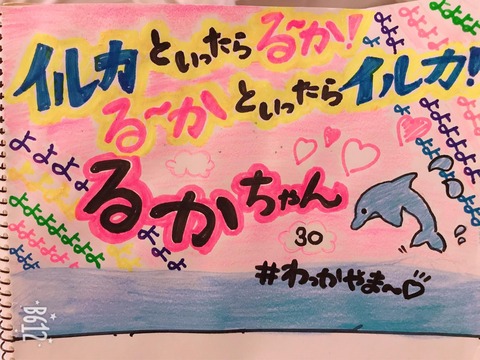 イルカといったらる～か!
る～かといったらイルカ!
よよよよ
るかちゃん
30
#わっかやま～♡
B612